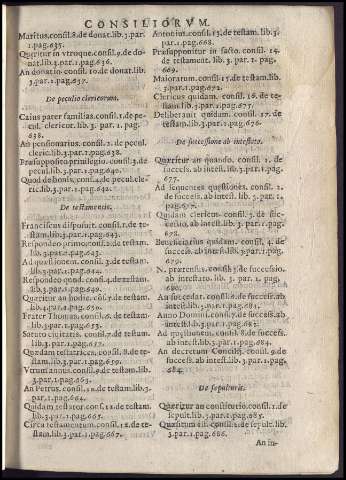 CONSILIORVM.
Maritus.consil.8.de donat.lib.3.par.
1.pag.635.
Quæritur in vtroque.consil.9.de do-
nat.lib.3.par.1.pag.636.
An donatio consil.10.de donat.lib.
3.par.1.pag.637.
De peculio clericorum.
Caius pater familias.consil.1.de pe-
cul. clericor. lib.3. par. 1. pag.
638.
Ad pensionarius.consil.2.de pecul.
cleric.lib.3.par.1.pag.638.
Præsupposito priuilegio.consil.3.de
pecul.lib.3.par.1.pag.640.
Quod de bonis.consil.4.de pecul.cle-
ric.lib.3.par.1.pag.642.
De testamentis.
Franciscus disposuit.consil.1.de te-
stam.lib.3.par.1.pag.643.
Respondeo primo.consil.2.de testam.
lib.3.par.1.pag.643.
Ad quæstionem.consil.3.de testam.
lib.3.par.1.pag.644.
Respondeo quod.consil.4.de testam.
lib.3.par.1.pag.649.
Quæritur an hodie.consil.5.de testam.
lib.3.par.1.pag.650.
Frater Thomas.consil.6.de testam.
lib.3.par.1.pag.653.
Statuto ciuitatis.consil.7.de testam.
lib.3.par.1.pag.656.
Quædam testatrices.consil.8.de te-
stam.lib.3.par.1.pag.659.
Vtrum annus.consil.9.de testam.lib.
3.par.1.pag.663.
An Petrus.consil.10.de testam.lib.3.
par.1.pag.664.
Quidam testator.consil.11.de testam.
lib.3.par.1.pag.667.
Circa testamentum.consil.12.de te-
stam.lib.3.par.1.pag.667.
Antonius.consil.13.de testam.lib.3.
par.1.pag.668.
Præsupponitur in facto.consil. 14.
de testament. lib. 3. par. 1. pag.
669.
Maiorarum.consil.15.de testam.lib.
3.par.1.pag.672.
Clericus quidam. consil. 16. de te-
stam.lib.3.par.1.pag.675.
Deliberauit quidam.consil. 17. de
testam.lib.3.par.1.pag.676.
De successione ab intestato.
Quæritur an quando. consil. 1. de
success. ab intest.lib.3.par.1.pag.
677.
Ad sequentes quæstiones. consil. 2.
de success. ab intest. lib. 3. par. 1.
pag.677.
Quidam clericus. consil. 3. de suc-
cessio. ab intest.lib.3.par.1.pag.
678.
Beneficiarius quidam. consil. 4. de
success. ab intest.lib.3.par.1.pag.
679.
N. prætensus.consil.5.de successio.
ab intestato. lib. 3. par. 1. pag.
680.
An succedat.consil.6.de success.ab
intest.lib.3.par.1.pag.681.
Anno Domini.consil.7.de success.ab
intestat.lib.3.par.1.pag.682.
Ad quæstionem.consil.8.de success.
ab intest.lib.3.par.1.pag.684.
An decretum Concilij.consil.9.de
success.ab intest.lib.3.par.1.pag.
684.
De sepulturis.
Quæritur an constitutio.consil.1.de
sepult.lib.3.par.1.pag.685.
Quæsitum est.consil.2.de sepult.lib.
3.par.1.pag.686.
An in-